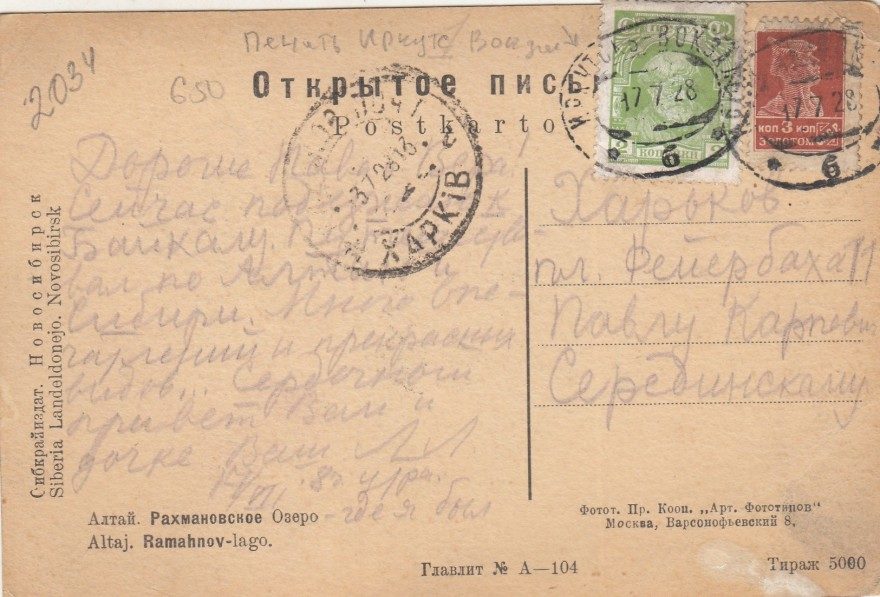 Печать Иркутс Вокзал
2034
650
Открытое письмо
Postkarto
ИРКУТСК-ВОКЗАЛ
17 7 28
б
17 7 28
б
КОП 3 КОП
ЗОЛОТОМ
ХАРКІВ
Дорогие
Сейчас к
Байкалу.
вал по Алтаю и
Сибири. Много впе-
чатлений и прекрасных
видов... Сердечный
привет Вам и
дочке Ваш
8 ч. утра.
Харьков
пл. Фейербаха 11
Павлу Карповичу
Серединскому
Сибкрайиздат. Новосибирск
Siberia Landeldonejo. Novosibirsk
Алтай. Рахмановское Озеро - где я был
Altaj. Ramahnov-lago.
Фотот. Пр. Кооп. „Арт. Фототипов"
Москва, Варсонофьевский 8.
Главлит № А—104
Тираж 5000